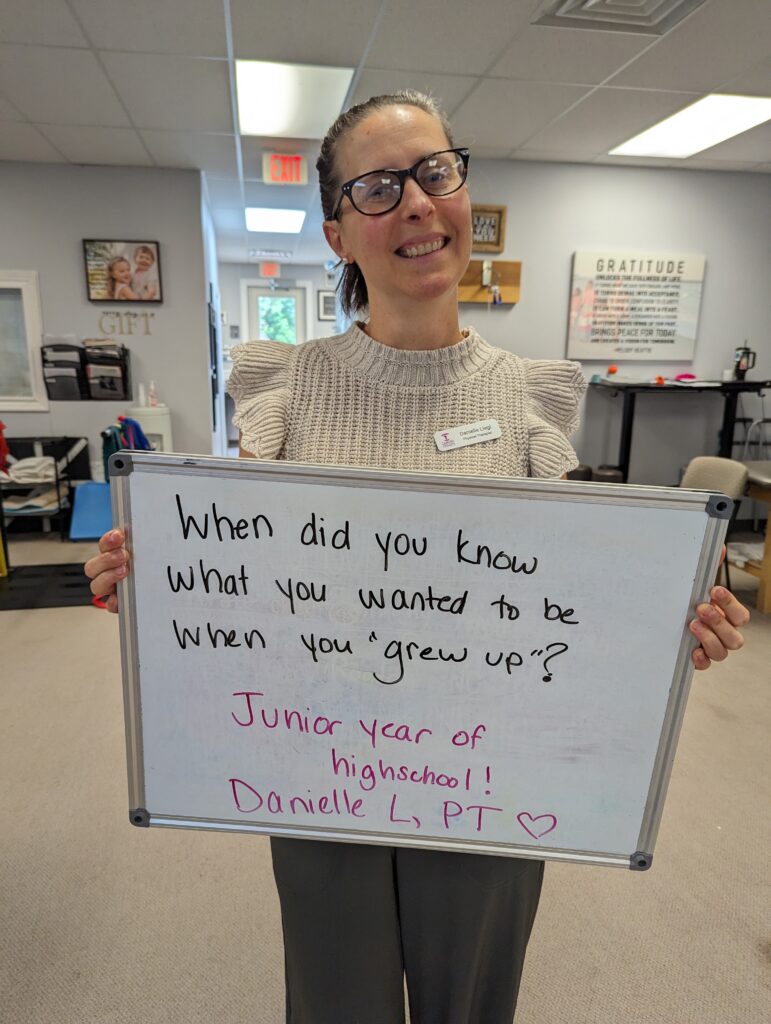 EXIT
LOVE
YOU
NEED
GIFT
GRATITUDE
UNLOCKS THE FULLNESS OF LIFE.
BRINGS PEACE FOR TODAY,
Danielle Liegl
Physical Therapist
When did you know
what you wanted to be
when you "grew up"?
Junior year of
highschool!
Danielle L, PT ♡